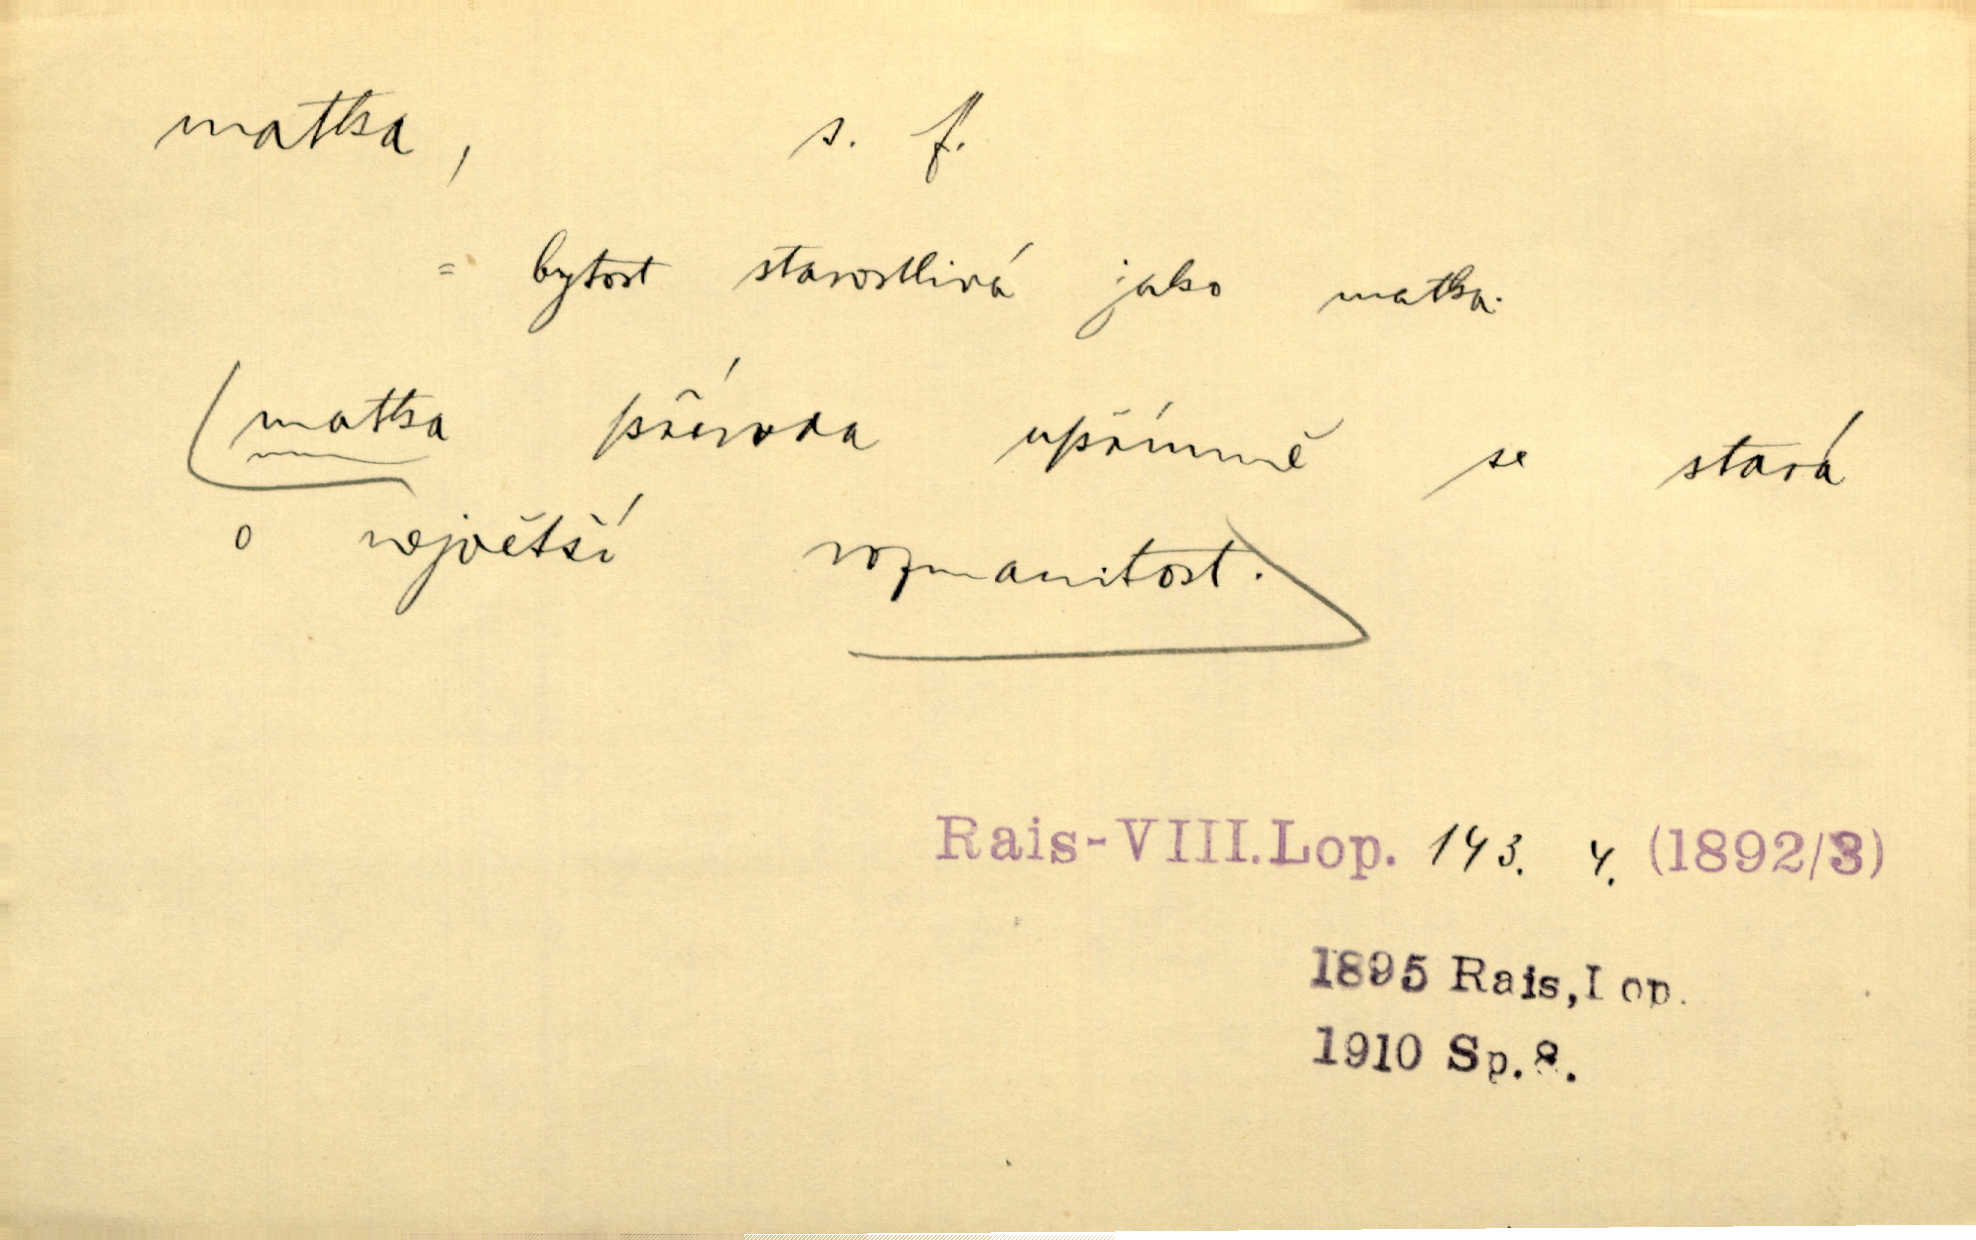 matka, s. f.
= bytost starostlivá jako matka.
matka příroda upřímně se stará
o největší rozmanitost.
Rais-VIII.Lop. 143. 4. (1892/3)
1895 Rais,Lop.
1910 Sp.8.